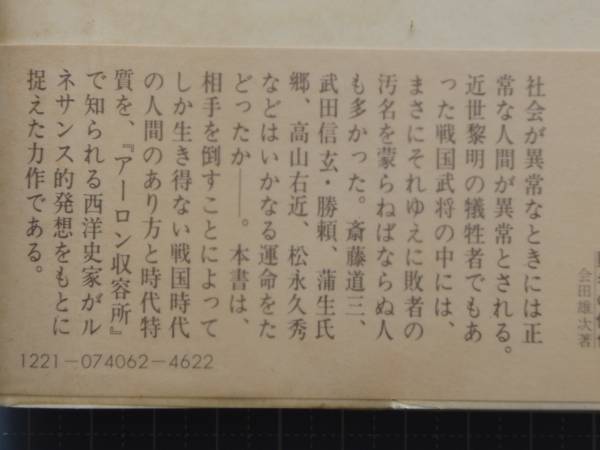 社会が異常なときには正
常な人間が異常とされる。
近世黎明の犠牲者でもあ
った戦国武将の中には、
まさにそれゆえに敗者の
汚名を蒙らねばならぬ人
も多かった。斎藤道三、
武田信玄・勝頼、蒲生氏
郷、高山右近、松永久秀
などはいかなる運命をた
どったか――。本書は、
相手を倒すことによって
しか生き得ない戦国時代
の人間のあり方と時代特
質を、『アーロン収容所』
で知られる西洋史家がル
ネサンス的発想をもとに
捉えた力作である。
1221-074062-4622
会田雄次著